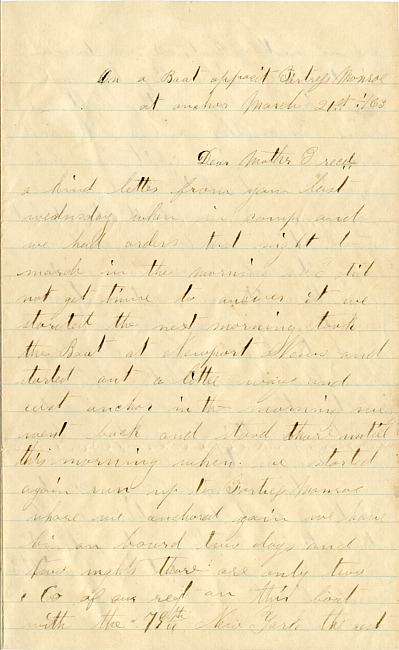 On a Boat apposit Fortress Monroe
at anchor March 21st 1863
Dear Mother I recd
a kind letter from you last
wednesday when in camp and
we had orders that night to
march in the morning and did
not get time to answer it we
started the next morning took
the Boat at Newport News and
started out a little ways and
cast anchor in the morning we
went back and stood there until
this morning when we started
again run up to Fortress Monroe
whare we anchored again we have
bin on board two days and
two nights thare are only two
Co of our regt on this boat
with the 79th New York the rest